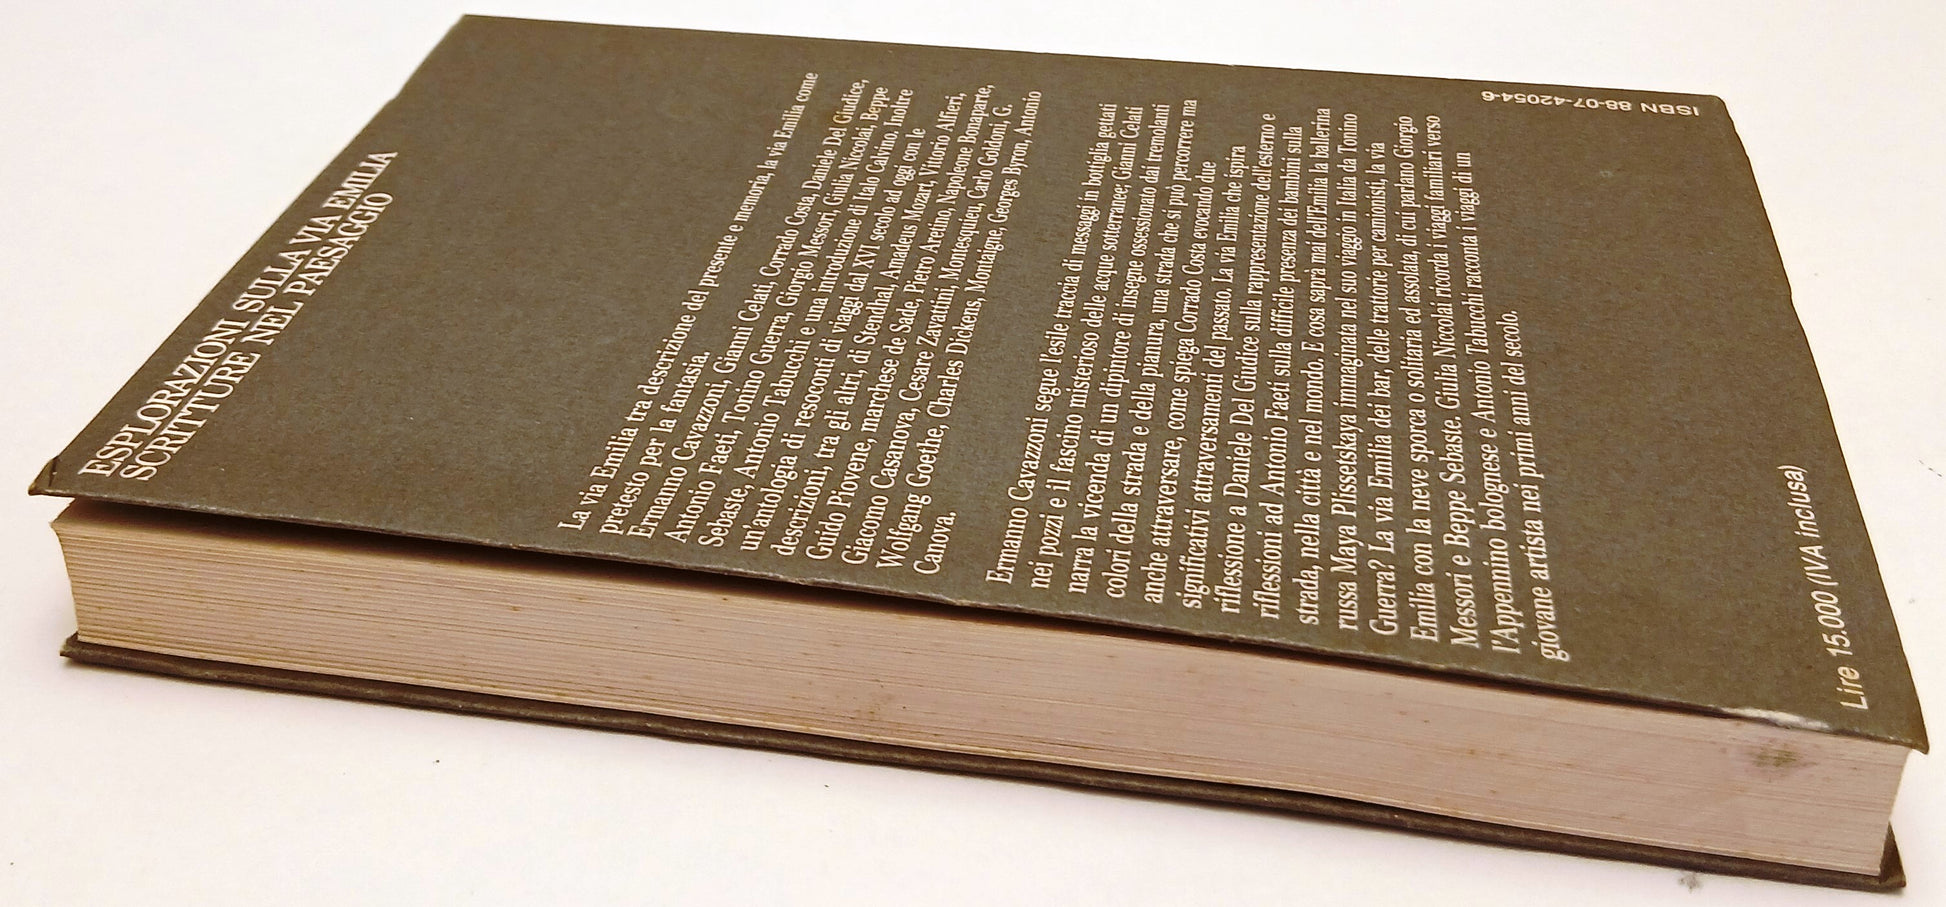 ESPLORAZIONI SULLA VIA EMILIA
SCRITTURE NEL PAESAGGIO
La via Emilia tra descrizione del presente e memoria, la via Emilia come
pretesto per la fantasia.
Ermanno Cavazzoni, Gianni Celati, Corrado Costa, Daniele Del Giudice,
Antonio Faeti, Tonino Guerra, Giorgio Messori, Giulia Niccolai, Beppe
Sebaste, Antonio Tabucchi e una introduzione di Italo Calvino. Inoltre
un'antologia di resoconti di viaggi dal XVI secolo ad oggi con le
descrizioni, tra gli altri, di Stendhal, Amadeus Mozart, Vittorio Alfieri,
Guido Piovene, marchese de Sade, Pietro Aretino, Napoleone Bonaparte,
Giacomo Casanova, Cesare Zavattini, Montesquieu, Carlo Goldoni, G.
Wolfgang Goethe, Charles Dickens, Montaigne, Georges Byron, Antonio
Canova.
Ermanno Cavazzoni segue l'esile traccia di messaggi in bottiglia gettati
nei pozzi e il fascino misterioso delle acque sotterranee; Gianni Celati
narra la vicenda di un dipintore di insegne ossessionato dai tremolanti
colori della strada e della pianura, una strada che si può percorrere ma
anche attraversare, come spiega Corrado Costa evocando due
significativi attraversamenti del passato. La via Emilia che ispira
riflessione a Daniele Del Giudice sulla rappresentazione dell'esterno e
riflessioni ad Antonio Faeti sulla difficile presenza dei bambini sulla
strada, nella città e nel mondo. E cosa saprà mai dell'Emilia la ballerina
russa Maya Plissetskaya immaginata nel suo viaggio in Italia da Tonino
Guerra? La via Emilia dei bar, delle trattorie per camionisti, la via
Emilia con la neve sporca o solitaria ed assolata, di cui parlano Giorgio
Messori e Beppe Sebaste. Giulia Niccolai ricorda i viaggi familiari verso
l'Appennino bolognese e Antonio Tabucchi racconta i viaggi di un
giovane artista nei primi anni del secolo.
ISBN 88-07-42054-6
Lire 15.000 (IVA inclusa)